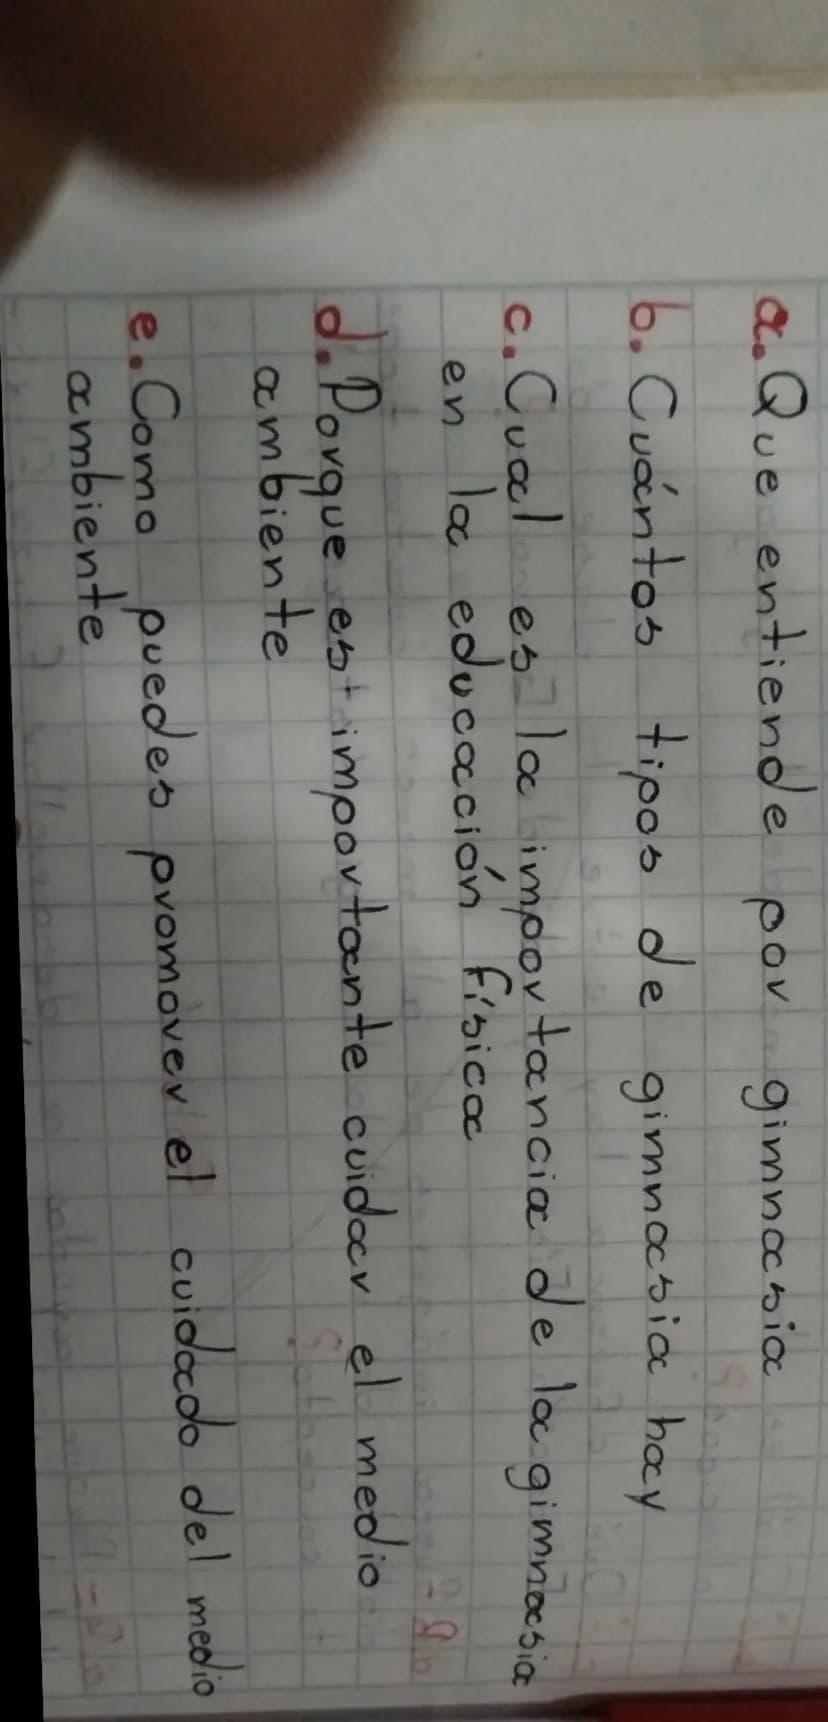 a. Que entiende por gimnasia
b. Cuántos tipos de gimnasia hay
c. Cual es la importancia de la gimnasia
en la educacción física
d. Porque es importante cuidar el medio
ambiente
e. Como puedes promover el cuidado del medio
ambiente